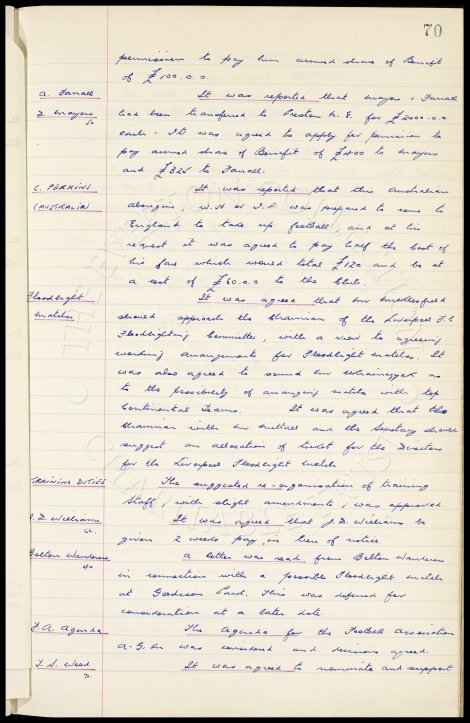 70
permission to pay him accrued share of Benefit
of £100.0.0
A. Farrall
It was reported that Mayers & Farrall
D. Mayers
had been transferred to Preston N. E. for £2000.0.0
each. It was agreed to apply for permission to
pay accrued share of Benefit of £400 to Mayers
and £325 to Farrall.
C. PERKINS
It was reported that this Australian
(AUSTRALIA)
aborigine, W.H or I.F was prepared to come to
England to take up football, and at his
request it was agreed to pay half the cost of
his fare which would total £120 and be at
a cost of £60.0.0 to the Club.
Floodlight
It was agreed that Mr
Matches
should approach the Chairman of the Liverpool F.C
Floodlighting Committee, with a view to agreeing
working arrangements for Floodlight matches. It
was also agreed to sound Mr as
to the possibility of arranging matches with top
Continental Teams. It was agreed that the
Chairman with Mr Nuttall and the Secretary should
suggest an allocation of ticket for the Directors
for the Liverpool Floodlight match
TRAINING DUTIES
The suggested re-organisation of training
Staff, with slight amendments, was approved.
J. D. Williams
It was agreed that J. D. Williams be
given 2 weeks pay in lieu of notice.
Bolton Wanderers
A letter was read from Bolton Wanderers
in connection with a possible Floodlight match
at Goodison Park. This was deferred for
consideration at a later date.
F. A. Agenda
The Agenda for the Football Association
A-G-M was considered and decisions agreed.
T. S. Wood
It was agreed to nominate and support